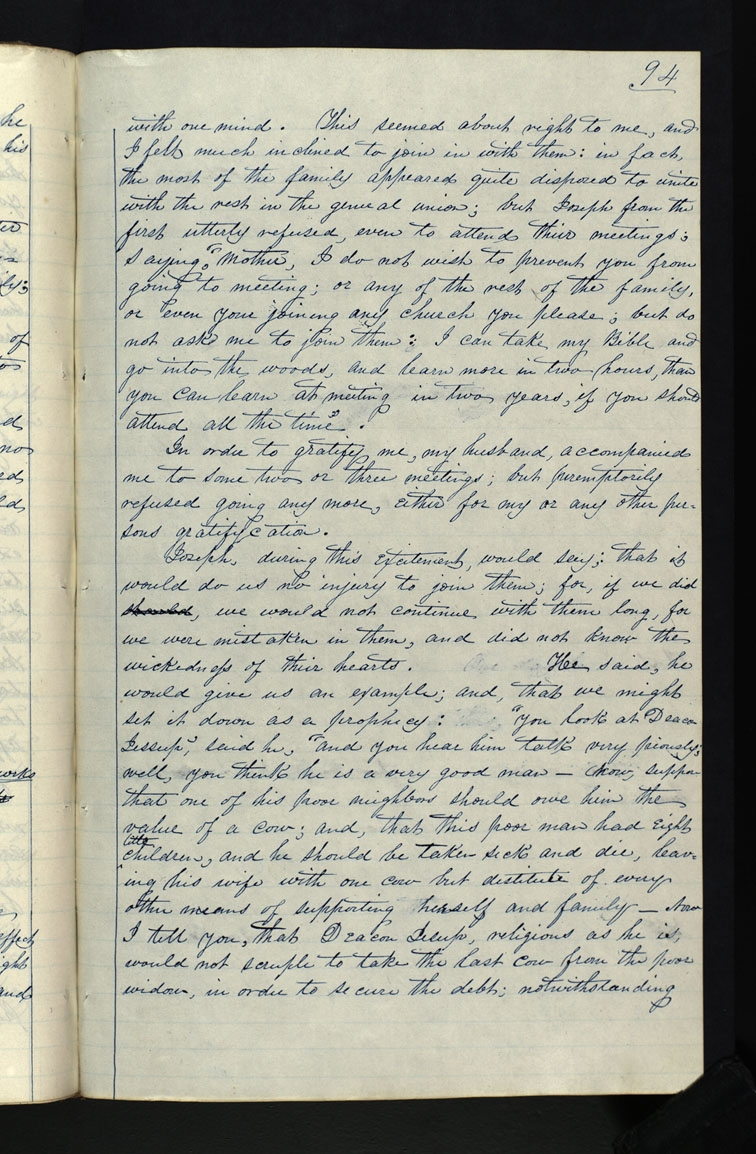 94
with one mind. This seemed about right to me, and
I felt much inclined to join in with them: in fact,
the most of the family appeared quite disposed to unite
with the rest in the general union; but Joseph from the
first utterly refused, even to attend their meetings;
saying, "Mother, I do not wish to prevent you from
going to meeting; or any of the rest of the family,
or even your joining any church you please; but do
not ask me to join them: I can take my Bible and
go into the woods, and learn more in two hours, than
you can learn at meeting in two years, if you should
attend all the time".
In order to gratify me, my husband, accompanied
me to some two or three meetings; but peremptorily
refused going any more, either for my or any other per-
sons gratification.
Joseph, during this excitement, would say; that it
would do us no injury to join them; for, if we did
should, we would not continue with them long, for
we were mistaken in them, and did not know the
wickedness of their hearts. He said, he
would give us an example; and, that we might
set it down as a prophecy: "you look at Deacon
Jessup", said he, "and you hear him talk very piously;
well, you think he is a very good man — Now, suppose
that one of his poor neighbors should owe him the
value of a cow; and, that this poor man had eight
little
children, and he should be taken sick and die, leav-
ing his wife with one cow but destitute of every
other means of supporting herself and family — Now
I tell you, that Deacon Jessup, religious as he is,
would not scruple to take the last cow from the poor
widow, in order to secure the debt; notwithstanding
he
his
of
no
works
effect
ight
and